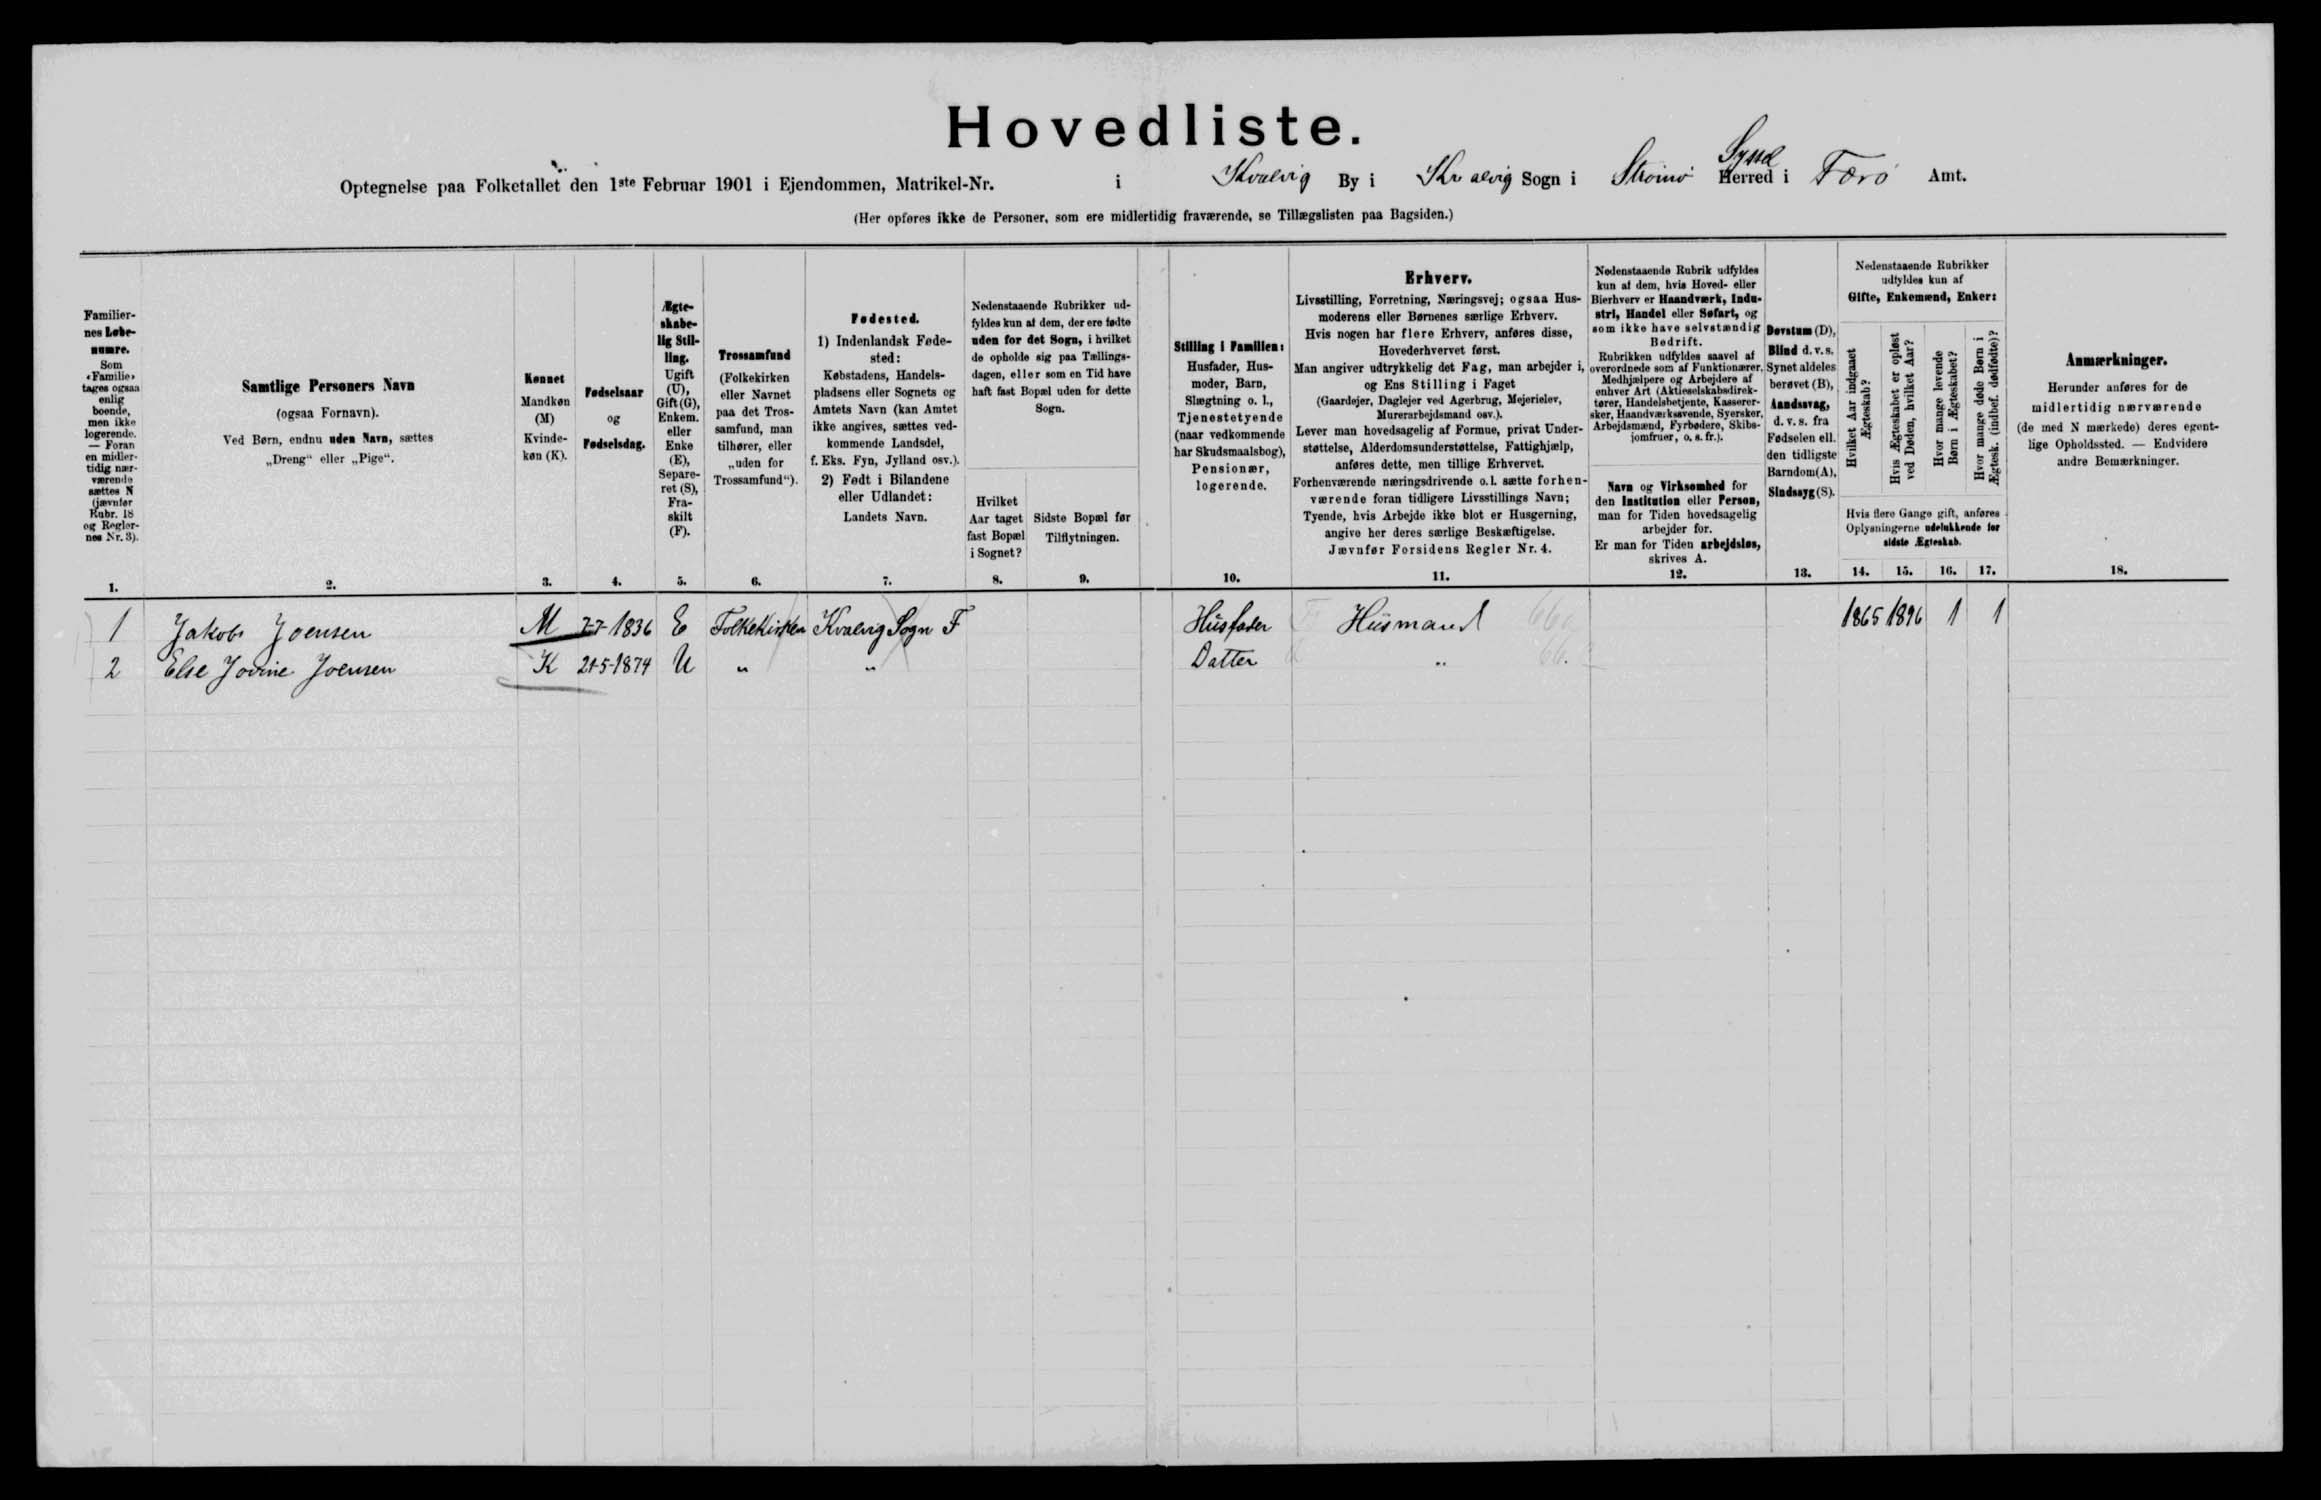 Hovedliste.
Optegnelse paa Folketallet den 1ste Februar 1901 i Ejendommen, Matrikel-Nr. i Kvalvig By i Kvalvig Sogn i Strømø Herred Syssel i Færø Amt.
(Her opføres ikke de Personer, som ere midlertidig fraværende, se Tillægslisten paa Bagsiden.)
Familier-
nes Løbe-
numre.
Som
«Familie»
tages ogsaa
enlig
boende,
men ikke
logerende.
— Foran
en midler-
tidig nær-
værende
sættes N
(jævnfør
Rubr. 18
og Regler-
nes Nr. 3).
1.
Samtlige Personers Navn
(ogsaa Fornavn).
Ved Børn, endnu uden Navn, sættes
„Dreng“ eller „Pige“.
2.
Kønnet
Mandkøn
(M)
Kvinde-
køn (K).
3.
Fødselsaar
og
Fødselsdag.
4.
Ægte-
skabe-
lig Stil-
ling.
Ugift
(U),
Gift (G),
Enkem.
eller
Enke
(E),
Separe-
ret (S),
Fra-
skilt
(F).
5.
Trossamfund
(Folkekirken
eller Navnet
paa det Tros-
samfund, man
tilhører, eller
„uden for
Trossamfund“).
6.
Fødested.
1) Indenlandsk Føde-
sted:
Købstadens, Handels-
pladsens eller Sognets og
Amtets Navn (kan Amtet
ikke angives, sættes ved-
kommende Landsdel,
f. Eks. Fyn, Jylland osv.).
2) Født i Bilandene
eller Udlandet:
Landets Navn.
7.
Nedenstaaende Rubrikker ud-
fyldes kun af dem, der ere fødte
uden for det Sogn, i hvilket
de opholde sig paa Tællings-
dagen, eller som en Tid have
haft fast Bopæl uden for dette
Sogn.
Hvilket
Aar taget
fast Bopæl
i Sognet?
8.
Sidste Bopæl før
Tilflytningen.
9.
Stilling i Familien:
Husfader, Hus-
moder, Barn,
Slægtning o. l.,
Tjenestetyende
(naar vedkommende
har Skudsmaalsbog),
Pensionær,
logerende.
10.
Erhverv.
Livsstilling, Forretning, Næringsvej; ogsaa Hus-
moderens eller Børnenes særlige Erhverv.
Hvis nogen har flere Erhverv, anføres disse,
Hovederhvervet først.
Man angiver udtrykkelig det Fag, man arbejder i,
og Ens Stilling i Faget
(Gaardejer, Daglejer ved Agerbrug, Mejerielev,
Murerarbejdsmand osv.).
Lever man hovedsagelig af Formue, privat Under-
støttelse, Alderdomsunderstøttelse, Fattighjælp,
anføres dette, men tillige Erhvervet.
Forhenværende næringsdrivende o. l. sætte forhen-
værende foran tidligere Livsstillings Navn;
Tyende, hvis Arbejde ikke blot er Husgerning,
angive her deres særlige Beskæftigelse.
Jævnfør Forsidens Regler Nr. 4.
11.
Nedenstaaende Rubrik udfyldes
kun af dem, hvis Hoved- eller
Bierhverv er Haandværk, Indu-
stri, Handel eller Søfart, og
som ikke have selvstændig
Bedrift.
Rubrikken udfyldes saavel af
overordnede som af Funktionærer,
Medhjælpere og Arbejdere af
enhver Art (Aktieselskabsdirek-
tører, Handelsbetjente, Kasserer-
sker, Haandværksøvende, Syersker,
Arbejdsmænd, Fyrbødere, Skibs-
jomfruer, o. s. fr.).
Navn og Virksomhed for
den Institution eller Person,
man for Tiden hovedsagelig
arbejder for.
Er man for Tiden arbejdsløs,
skrives A.
12.
Døvstum (D),
Blind d. v. s.
Synet aldeles
berøvet (B),
Aandssvag,
d. v. s. fra
Fødselen ell.
den tidligste
Barndom (A),
Sindssyg (S).
13.
Nedenstaaende Rubrikker
udfyldes kun af
Gifte, Enkemænd, Enker:
Hvilket Aar indgaaet
Ægteskab?
Hvis Ægteskabet er opløst
ved Døden, hvilket Aar?
Hvor mange levende
Børn i Ægteskabet?
Hvor mange døde Børn i
Ægtesk. (indbef. dødfødte)?
Hvis flere Gange gift, anføres
Oplysningerne udelukkende for
sidste Ægteskab.
14. 15. 16. 17.
Anmærkninger.
Herunder anføres for de
midlertidig nærværende
(de med N mærkede) deres egent-
lige Opholdssted. — Endvidere
andre Bemærkninger.
18.
1 Jakob Joensen M 7-7-1836 E Folkekirken Kvalvig Sogn F Husfader Husmand 1865 1896 1 1
2 Else Jovine Joensen K 21-5-1874 U „ „ Datter „